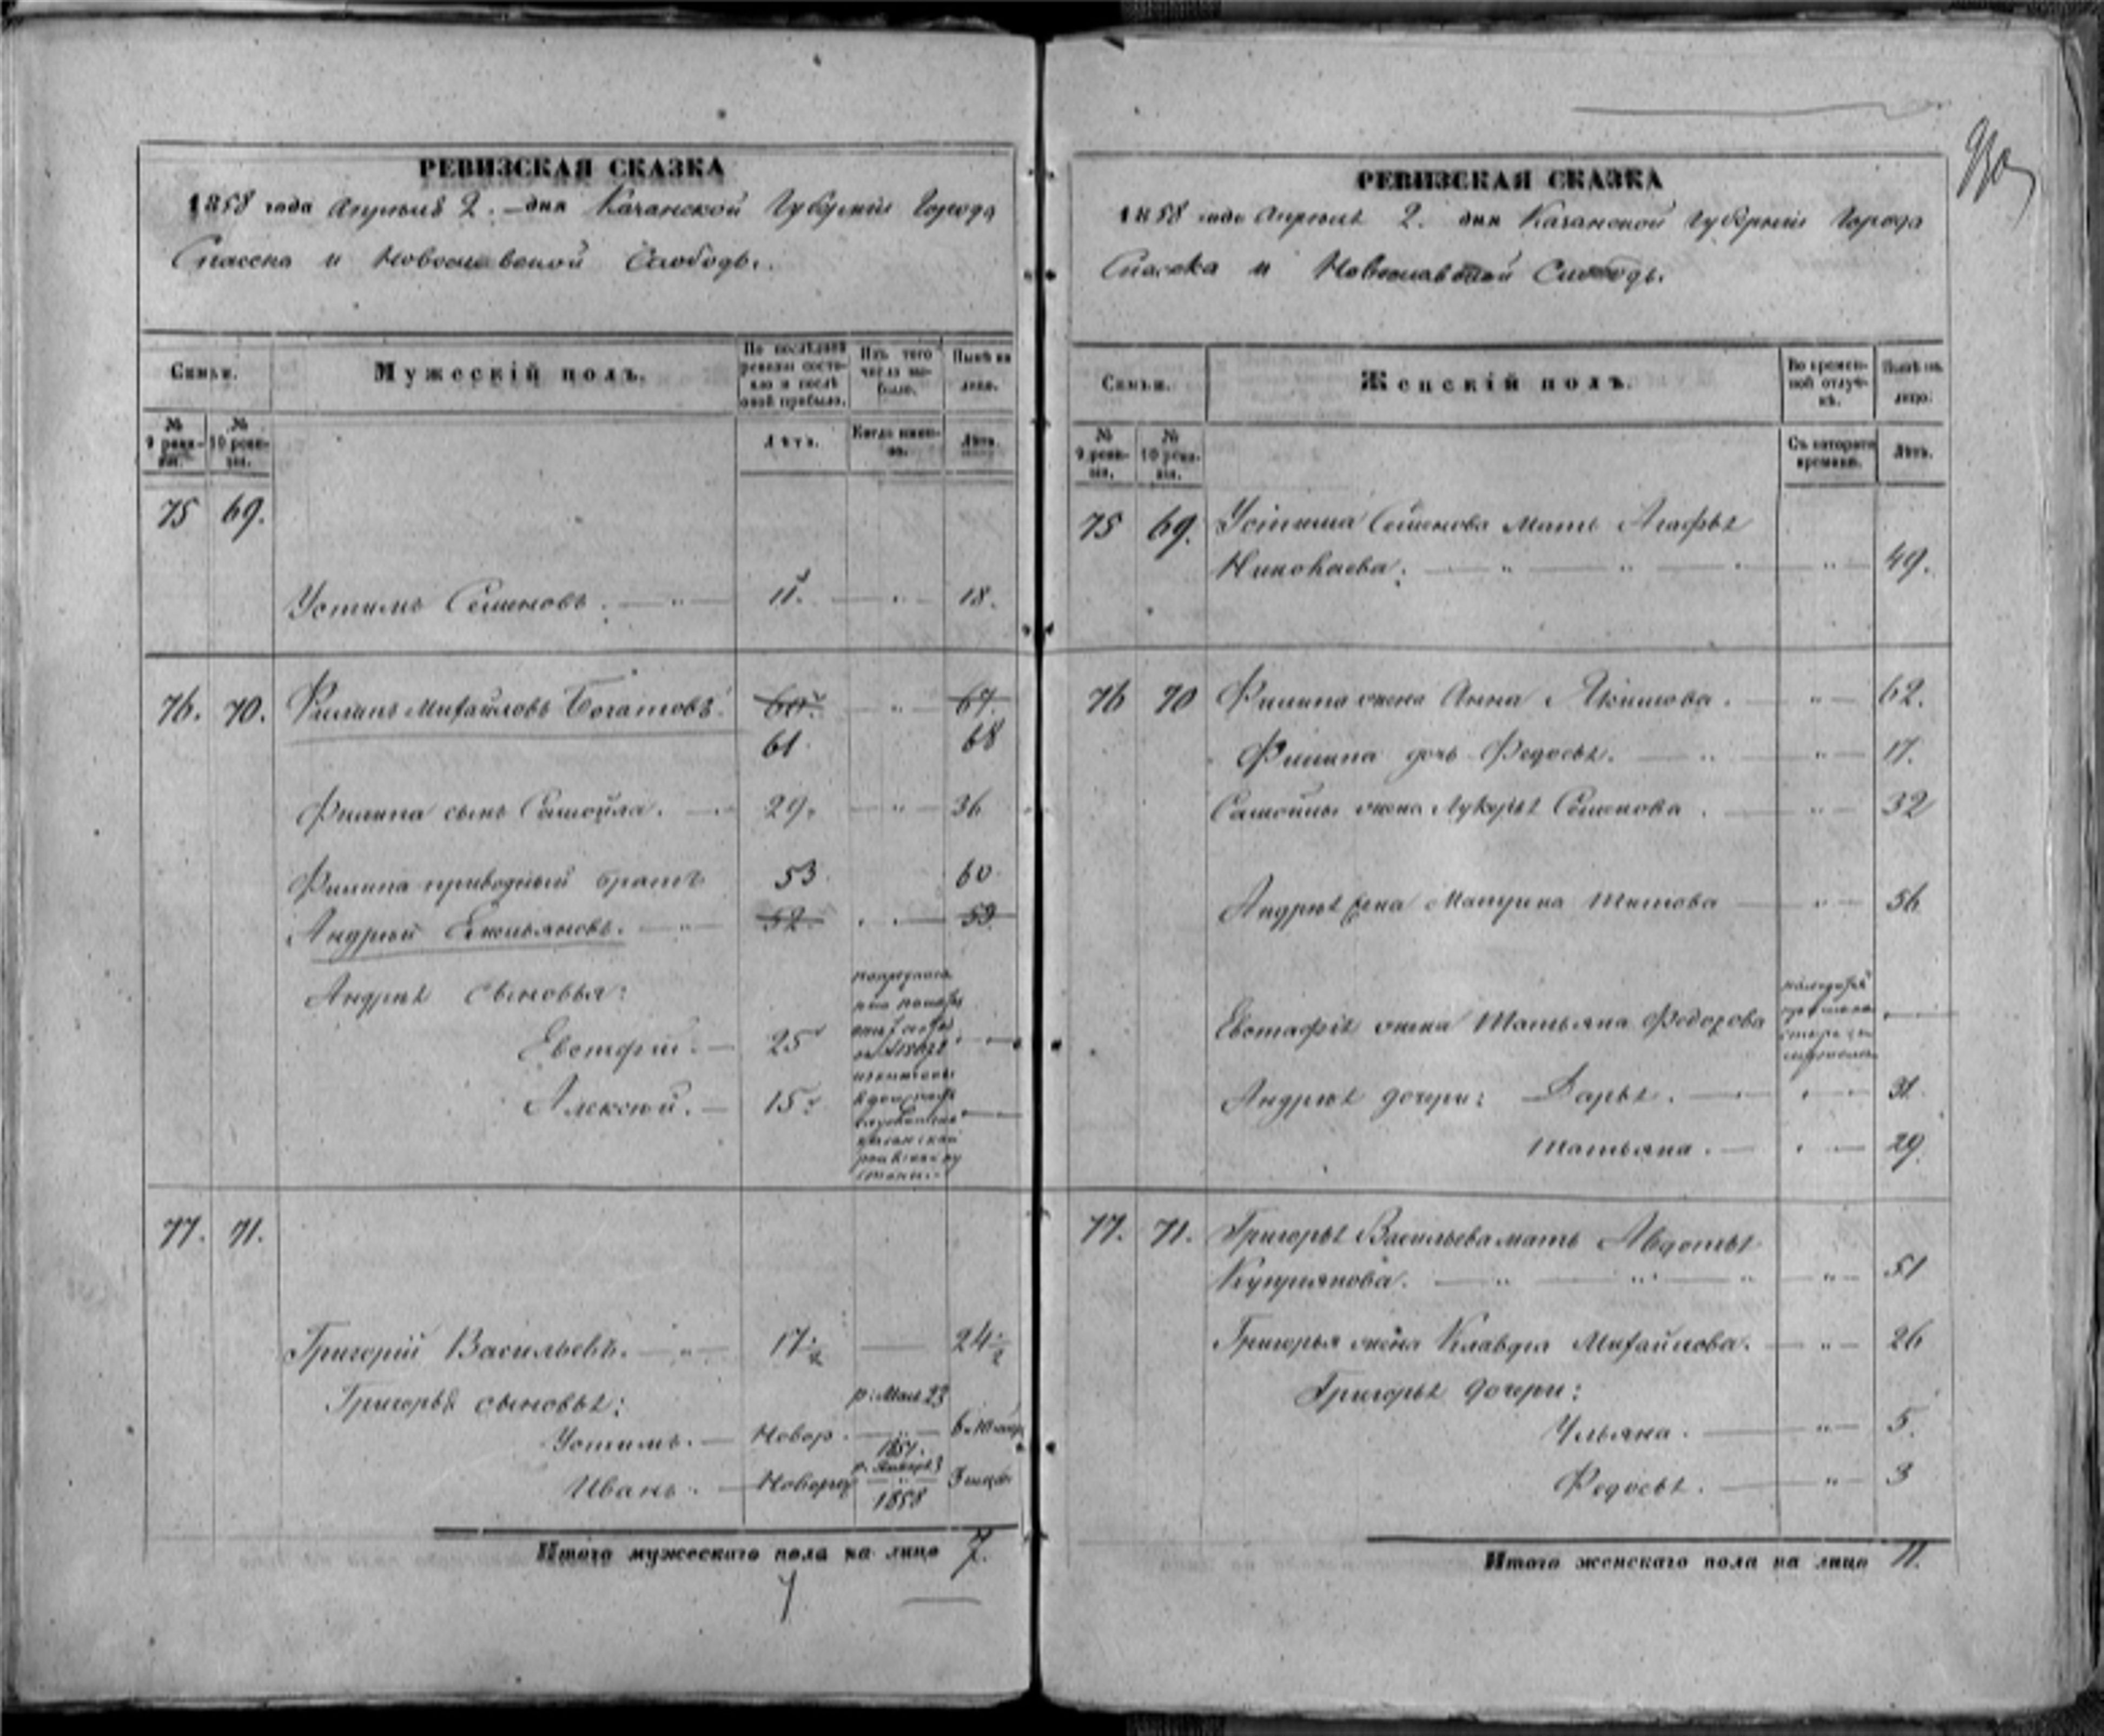 РЕВИЗСКАЯ СКАЗКА
1858 года Апрѣля 2. дня Казанской Губерніи Города
Спасска и Слободы.
Семьи.
Мужескій полъ.
По послѣдней ревизіи состояло и послѣ оной прибыло.
Изъ того числа выбыло.
Нынѣ на лицо.
№ 9 ревизіи.
№ 10 ревизіи.
Лѣта.
Когда именно.
Лѣта.
75 69.
Устинъ Семеновъ. 11. 18.
76. 70. Филипъ Михайловъ Богатовъ. 60. 67.
61 68
Филипа сынъ Самойла. 29. 36
Филипа приводный братъ 53 60
Андрей Емельяновъ. 52 59
Андрея сыновья:
Евстафій. 25
Алексѣй. 15
77. 71.
Григорій Васильевъ. 17 1/2 24 1/2
Григорья сыновья: р. Мая 23
Устинъ. Новор. 1857.
р. Января 3
Иванъ. Новорож 1858 3 мѣся
Итого мужескаго пола на лицо 7.
7
РЕВИЗСКАЯ СКАЗКА
1858 года Апрѣля 2. дня Казанской Губерніи Города
Спасска и Слободы.
Семьи.
Женскій полъ.
Во временной отлучкѣ.
Нынѣ на лицо.
№ 9 ревизіи.
№ 10 ревизіи.
Съ котораго времени.
Лѣта.
75 69. Устина Семенова мать Агафья
Николаева. 49.
76 70 Филипа жена Анна Якимова. 62.
Филипа дочь Федосья. 17.
Самойлы жена Лукерья Семенова. 32
Андрея жена Матрена Титова 56
Евстафія жена Татьяна Федорова
Андрея дочери: Дарья. 31.
Татьяна. 29.
77. 71. Григорья Васильева мать Авдотья
Куприянова. 51
Григорья жена Клавдія Михайлова. 26
Григорья дочери:
Ульяна. 5.
Федосья. 3
Итого женскаго пола на лицо 11.